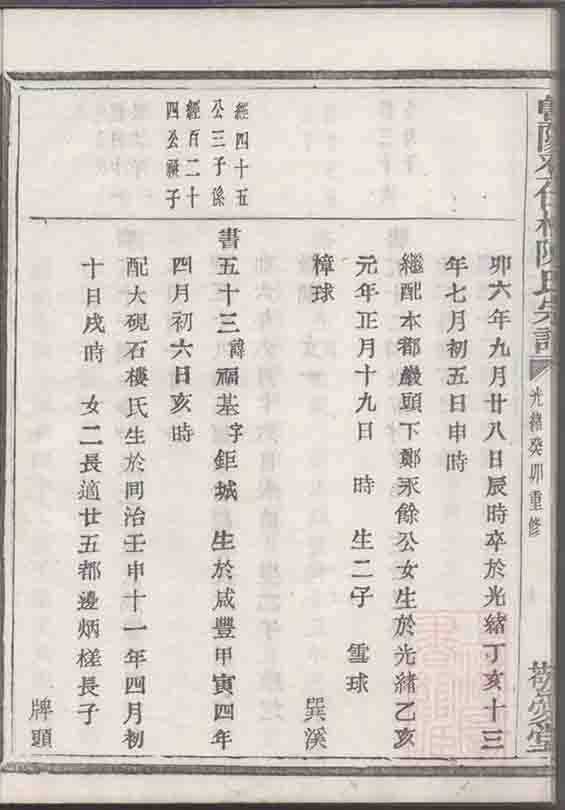 陳氏宗譜
光緒癸卯重修
敬愛堂
卯六年九月廿八日辰時卒於光緒丁亥十三
年七月初五日申時
繼配本都巖頭下鄭永餘公女生於光緒乙亥
元年正月十九日 時 生二子 雪球
樟球
巽溪
經四十五
公三子係
經百二十
四公祧子
書五十三諱福基字鉅城 生於咸豐甲寅四年
四月初六日亥時
配大硯石樓氏生於同治壬申十一年四月初
十日戌時 女二長適廿五都邊炳槎長子
牌頭